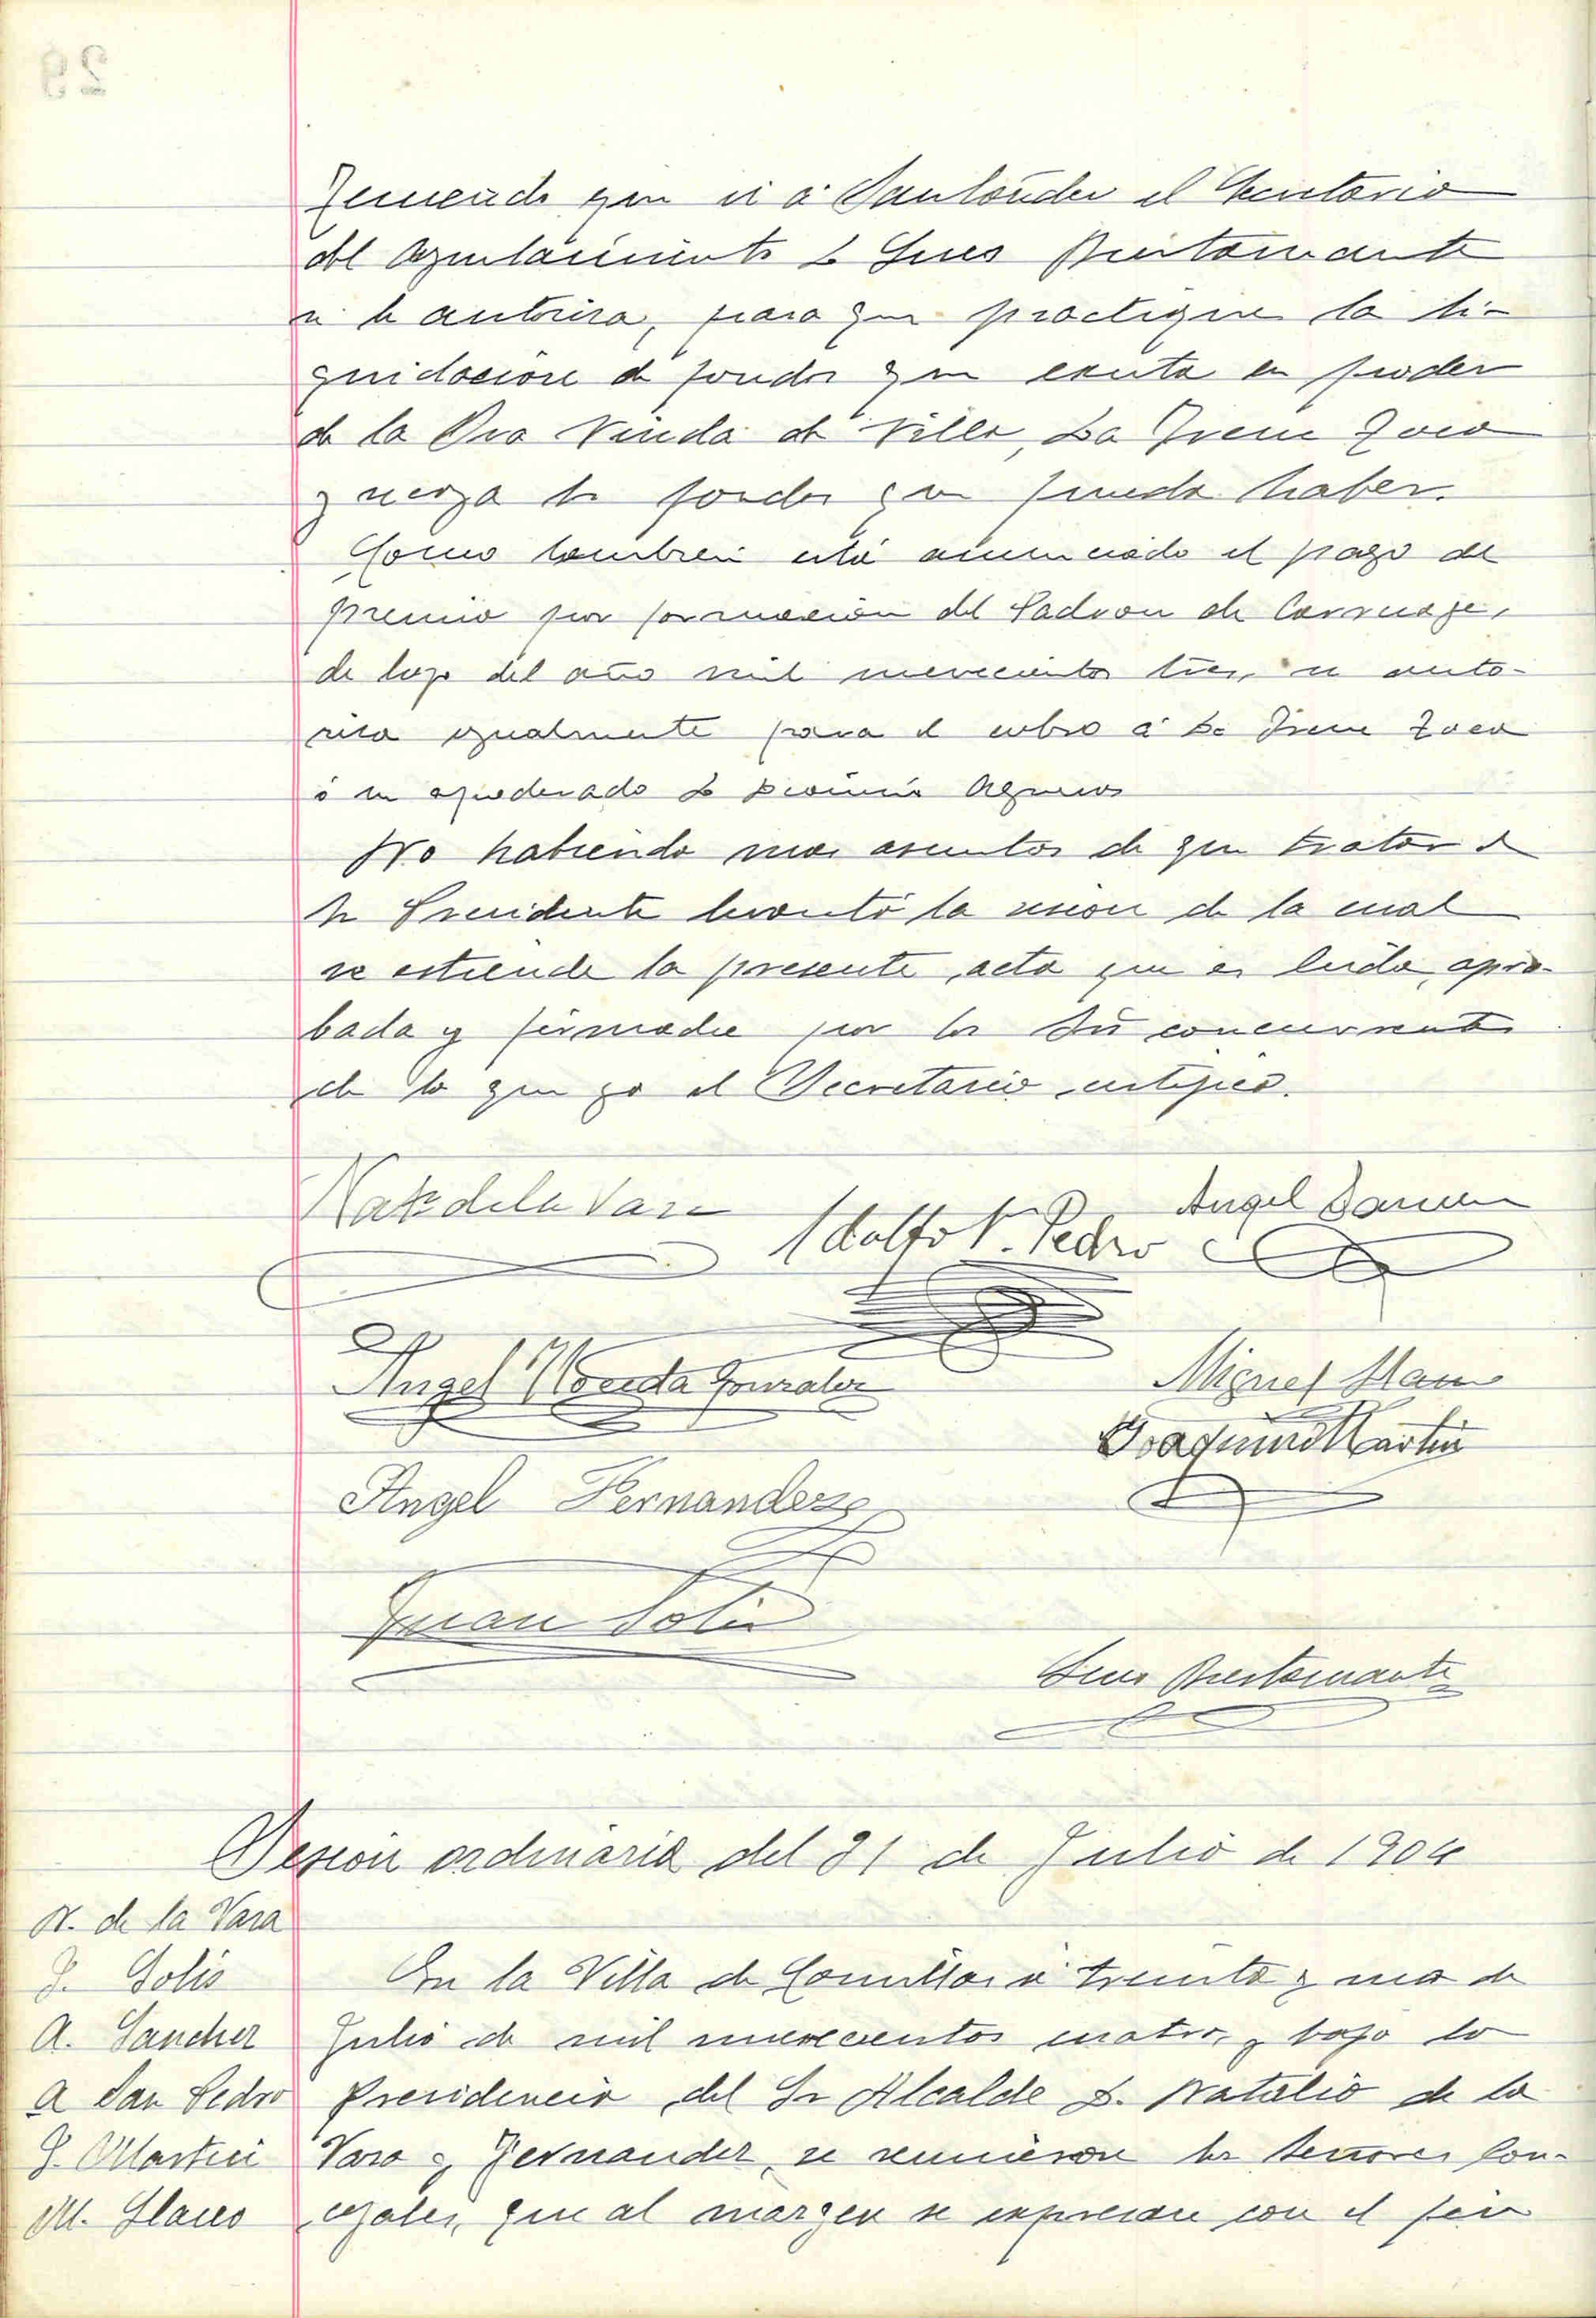 Teniendo que ir á Santander el Secretario
del Ayuntamiento D Gines Bustamante
se le autoriza, para que practique la li-
quidacion de fondos que exista en poder
de la Sra Viuda de Villa, La
y recoja los fondos que pueda haber.
Como tambien está anunciado el pago de
premio por formacion del Padron de Carruajes,
de lujo del año mil novecientos tres, se auto-
riza igualmente para el cobro á
ó su apoderado D
No habiendo mas asuntos de que tratar el
Sr Presidente levantó la sesion de la cual
se estiende la presente acta que es leida, apro-
bada y firmada por los Sres concurrentes
de lo que yo el Secretario certifico.
Nat de la Vara
Angel
Adolfo S. Pedro
Angel Gonzalez
Miguel
Joaquin Martin
Angel Fernandez
Juan Solis
Gines Bustamante
Sesion ordinaria del 31 de Julio de 1904
N. de la Vara
J. Solis
A. Sanchez
A San Pedro
J. Martin
M.
En la Villa de Comillas á treinta y uno de
Julio de mil novecientos cuatro, y bajo la
Presidencia del Sr Alcalde D. Natalio de la
Vara y Fernandez, se reunieron los Señores Con-
cejales, que al margen se expresan con el fin